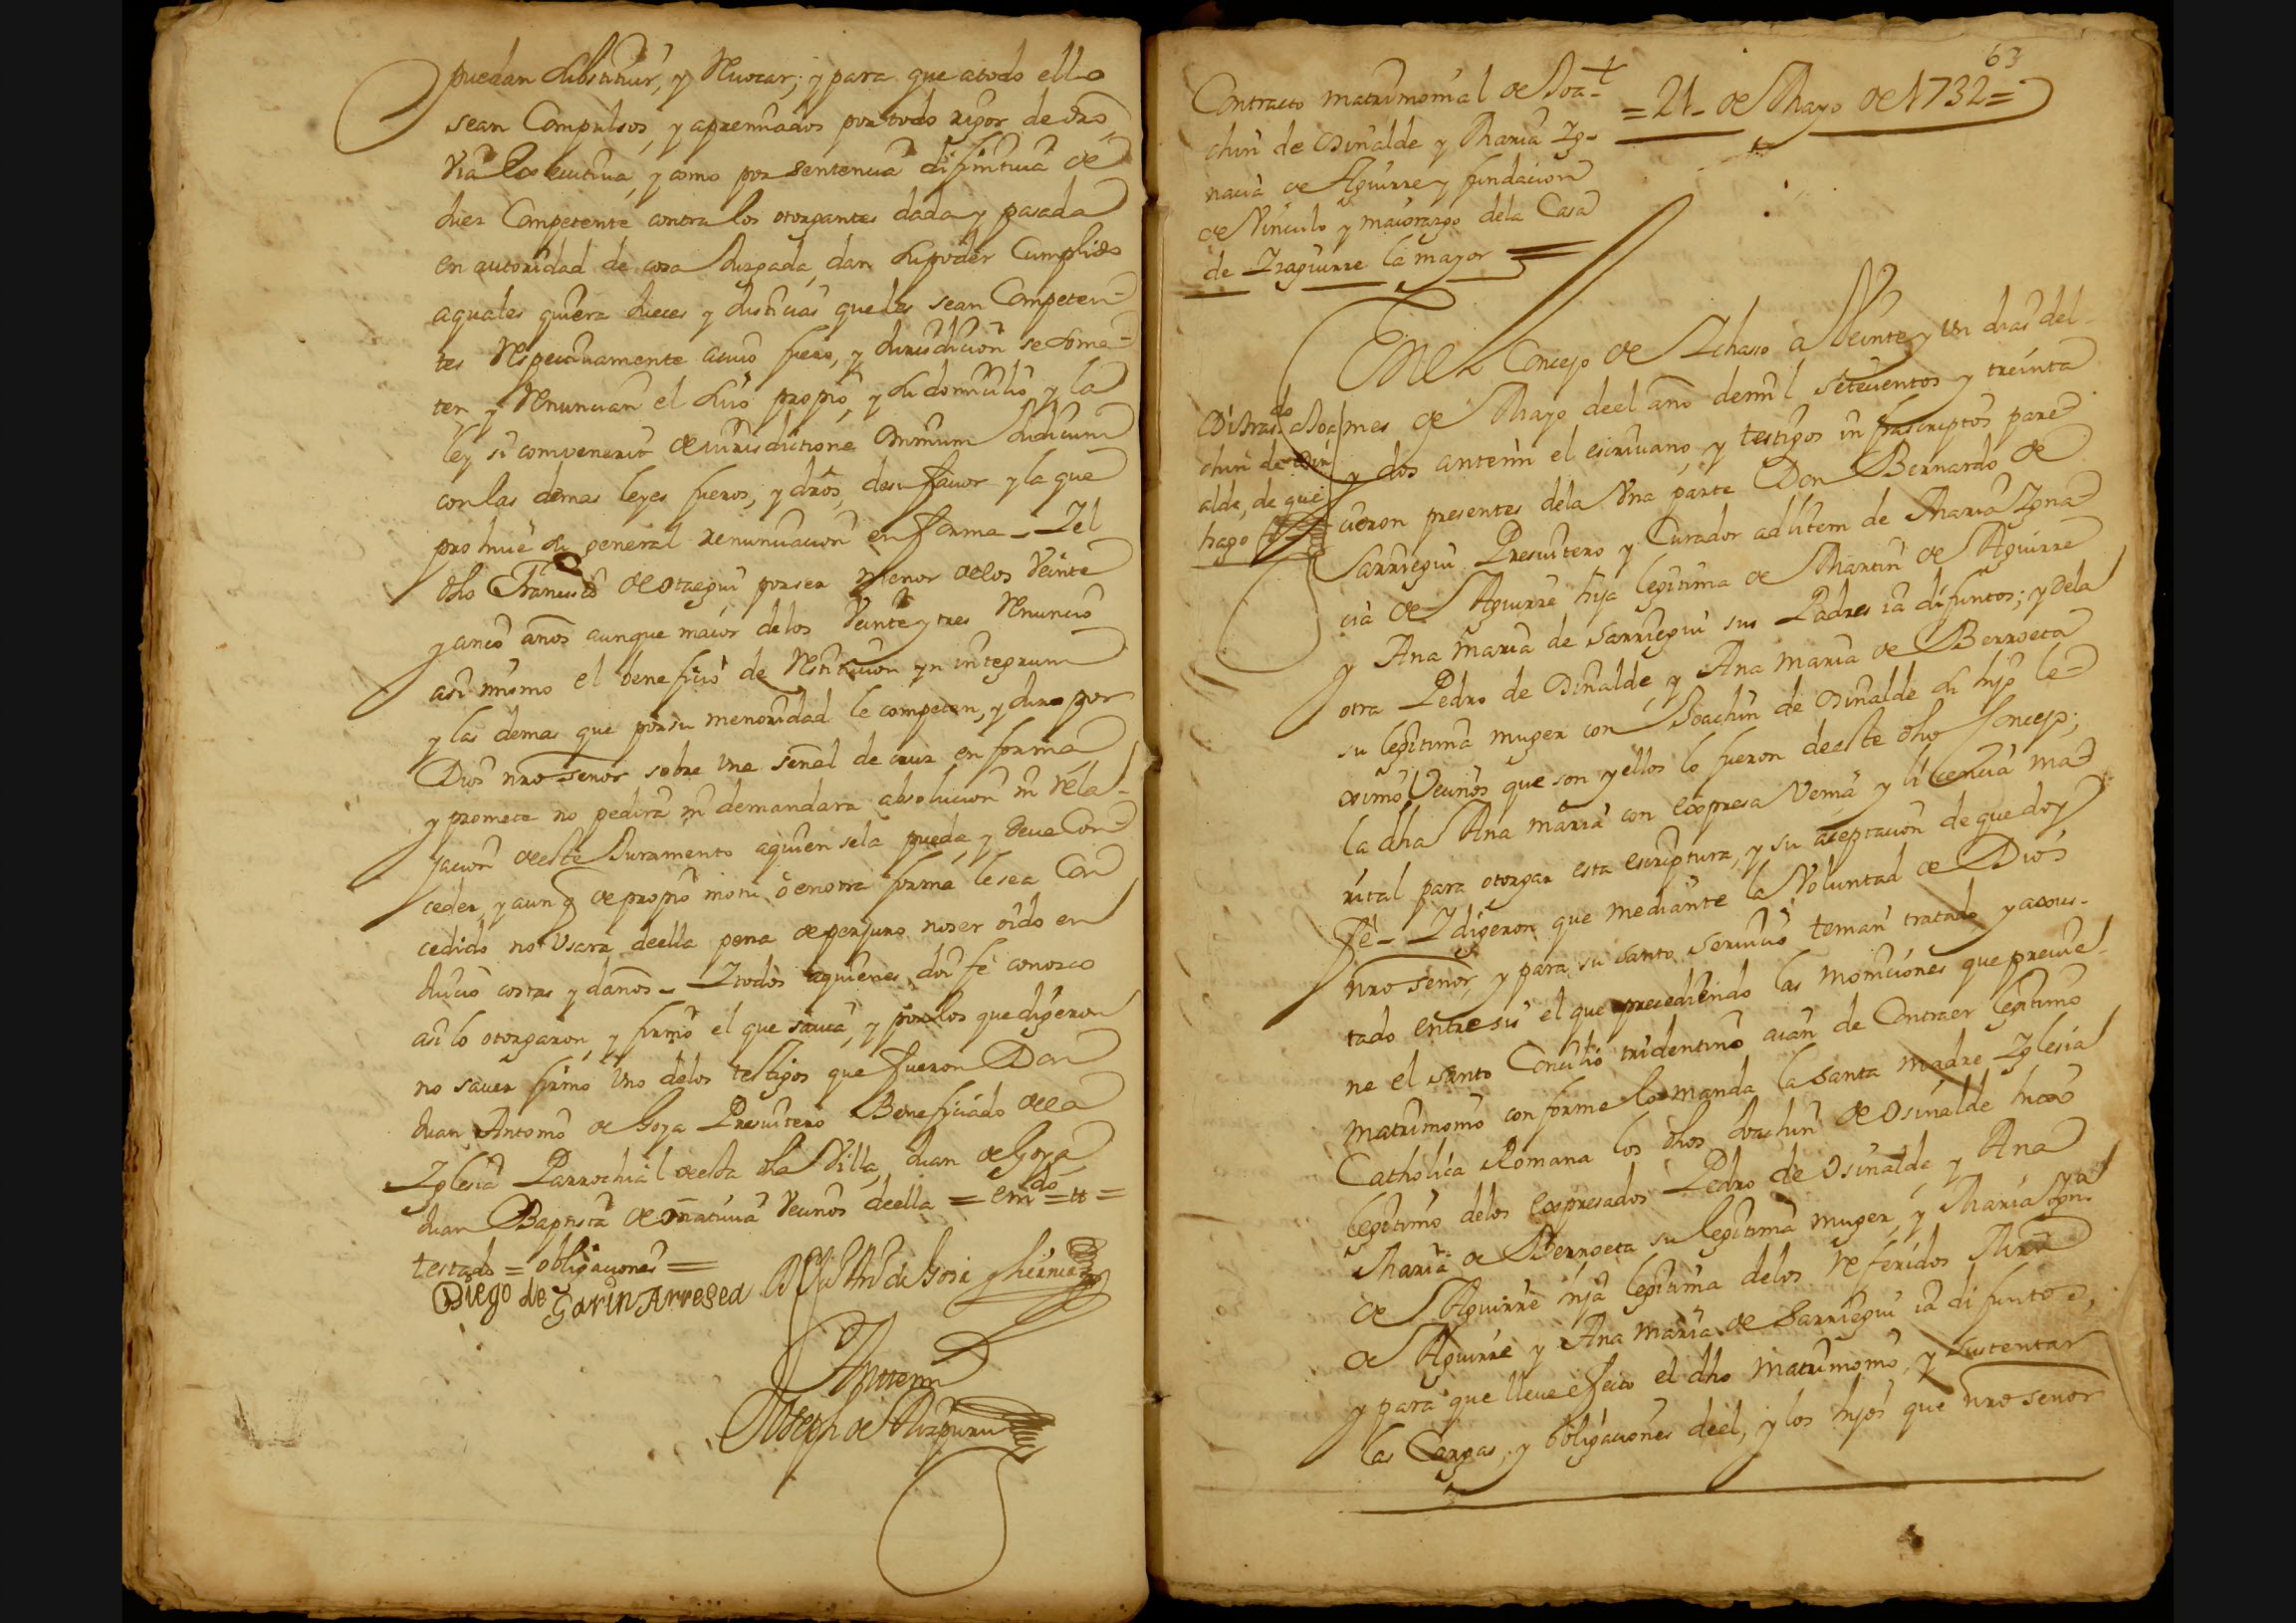 puedan substituir, y Revocar; y para que a todo ello
sean Compulsos, y apremiados por todo rigor de dro,
Via Executiva, y como por sentencia difinitiva de
Juez Competente contra los otorgantes dada y pasada
en autoridad de cosa Juzgada, dan su poder Cumplido
aquales quiera Jueces y Justicias que les sean Competen-
tes Respectivamente acuio fuero, y Jurisdicion se some-
ten y Renuncian el suio propio, y su domicilio y la
ley si convenerit de iurisdictione Omnium Judicum
con las demas leyes fueros, y dros, de su favor y la que
prohive la general renunciacion en forma - Y el
dho Francisco de Otaegui por ser menor de los Veinte
y cinco años aunque maior de los Veinte y tres Renuncio
asi mismo el beneficio de Restitucion yn integrum
y las demas que por su menoridad le competen, y juro por
Dios nro señor sobre una señal de cruz en forma
y promete no pedira ni demandara absolucion ni Rela-
jacion de este Juramento aquien se la pueda, y deva Con-
ceder, y aunq de propio motu ô en otra forma le sea Con
cedido no Usara de ella pena de perjuro no ser oido en
Juicio costas y daños - Y todos aquienes doi fè conozco
asi lo otorgaron, y firmò el que savia, y por los que digeron
no saver firmo Uno de los testigos que fueron Don
Juan Antonio de Goya Presvitero Beneficiado de la
Yglesia Parrochial de esta dha Villa, Juan de Goya
Juan Baptista de Vecinos de ella = em.do =
testado = obligaciones =
Diego de Garin Arresea
Antemi
Joseph de Aizpuru
63
Contracto matrimonial de Joa-
chin de Osinalde y Maria Yg-
nacia de Aguirre y fundacion
de Vinculo y maiorazgo de la Casa
de Yraguirre la mayor =
= 21 - de Mayo de 1732 =
En el Concejo de Ychaso a Veinte y Un dias del
mes de Mayo de el año de mil setecientos y treinta
y dos ante mi el escrivano, y testigos infrascriptos pare
cieron presentes de la Una parte Don Bernardo de
Sarriegui Presvitero y Curador adlitem de Maria Ygna
cia de Aguirre hija legitima de Martin de Aguirre
y Ana Maria de Sarriegui sus Padres ia difuntos; y de la
otra Pedro de Osinalde y Ana Maria de Berroeta
su legitima muger con Joachin de Osinalde su hijo le-
gitimo Vecinos que son y ellos lo fueron de este dho Concejo;
la dha Ana Maria con expresa Venia y licencia ma
rital para otorgar esta escriptura, y su aceptacion de que doy
Fè - Y digeron que mediante la Voluntad de Dios
nro señor, y para su santo servicio tenian tratado y ajus-
tado entre si el que precediendo las moniciones que previe
ne el santo Concilio tridentino aian de Contraer legitimo
matrimonio conforme lo manda la santa madre Yglesia
Catholica Romana los dhos Joachin de Osinalde hixo
legitimo de los expresados Pedro de Osinalde y Ana
Maria de Berroeta su legitima muger, y Maria Ygn.cia
de Aguirre hija legitima de los referidos Mrn
de Aguirre y Ana Maria de Sarriegui ia difuntos,
y para que lleve efecto el dho matrimonio, y sustentar
las Cargas, y obligaciones de el, y los hijos que nro señor
Di tras.do a Joa
chin de Osin
alde, de que
hago fee